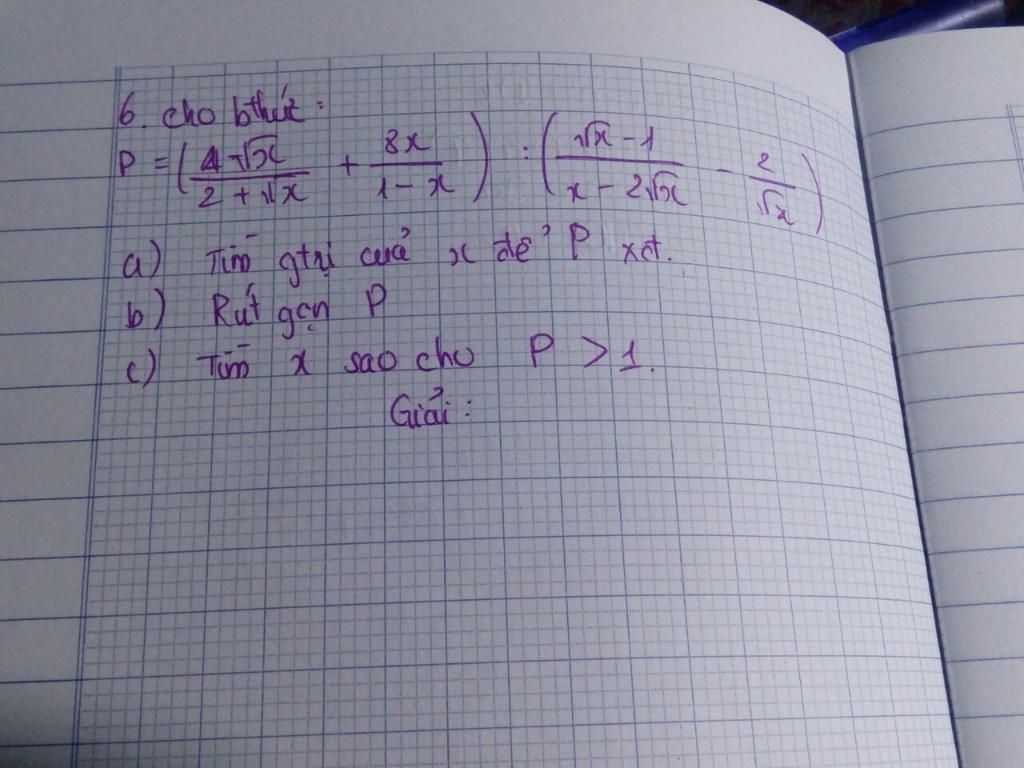 6. cho bthức :
P = ( 4√x / 2 + √x + 8x / 1 - x ) : ( √x - 1 / x - 2√x - 2 / √x )
a) Tìm gtrị cuả x để P xđ.
b) Rút gọn P
c) Tìm x sao cho P > 1.
Giải :